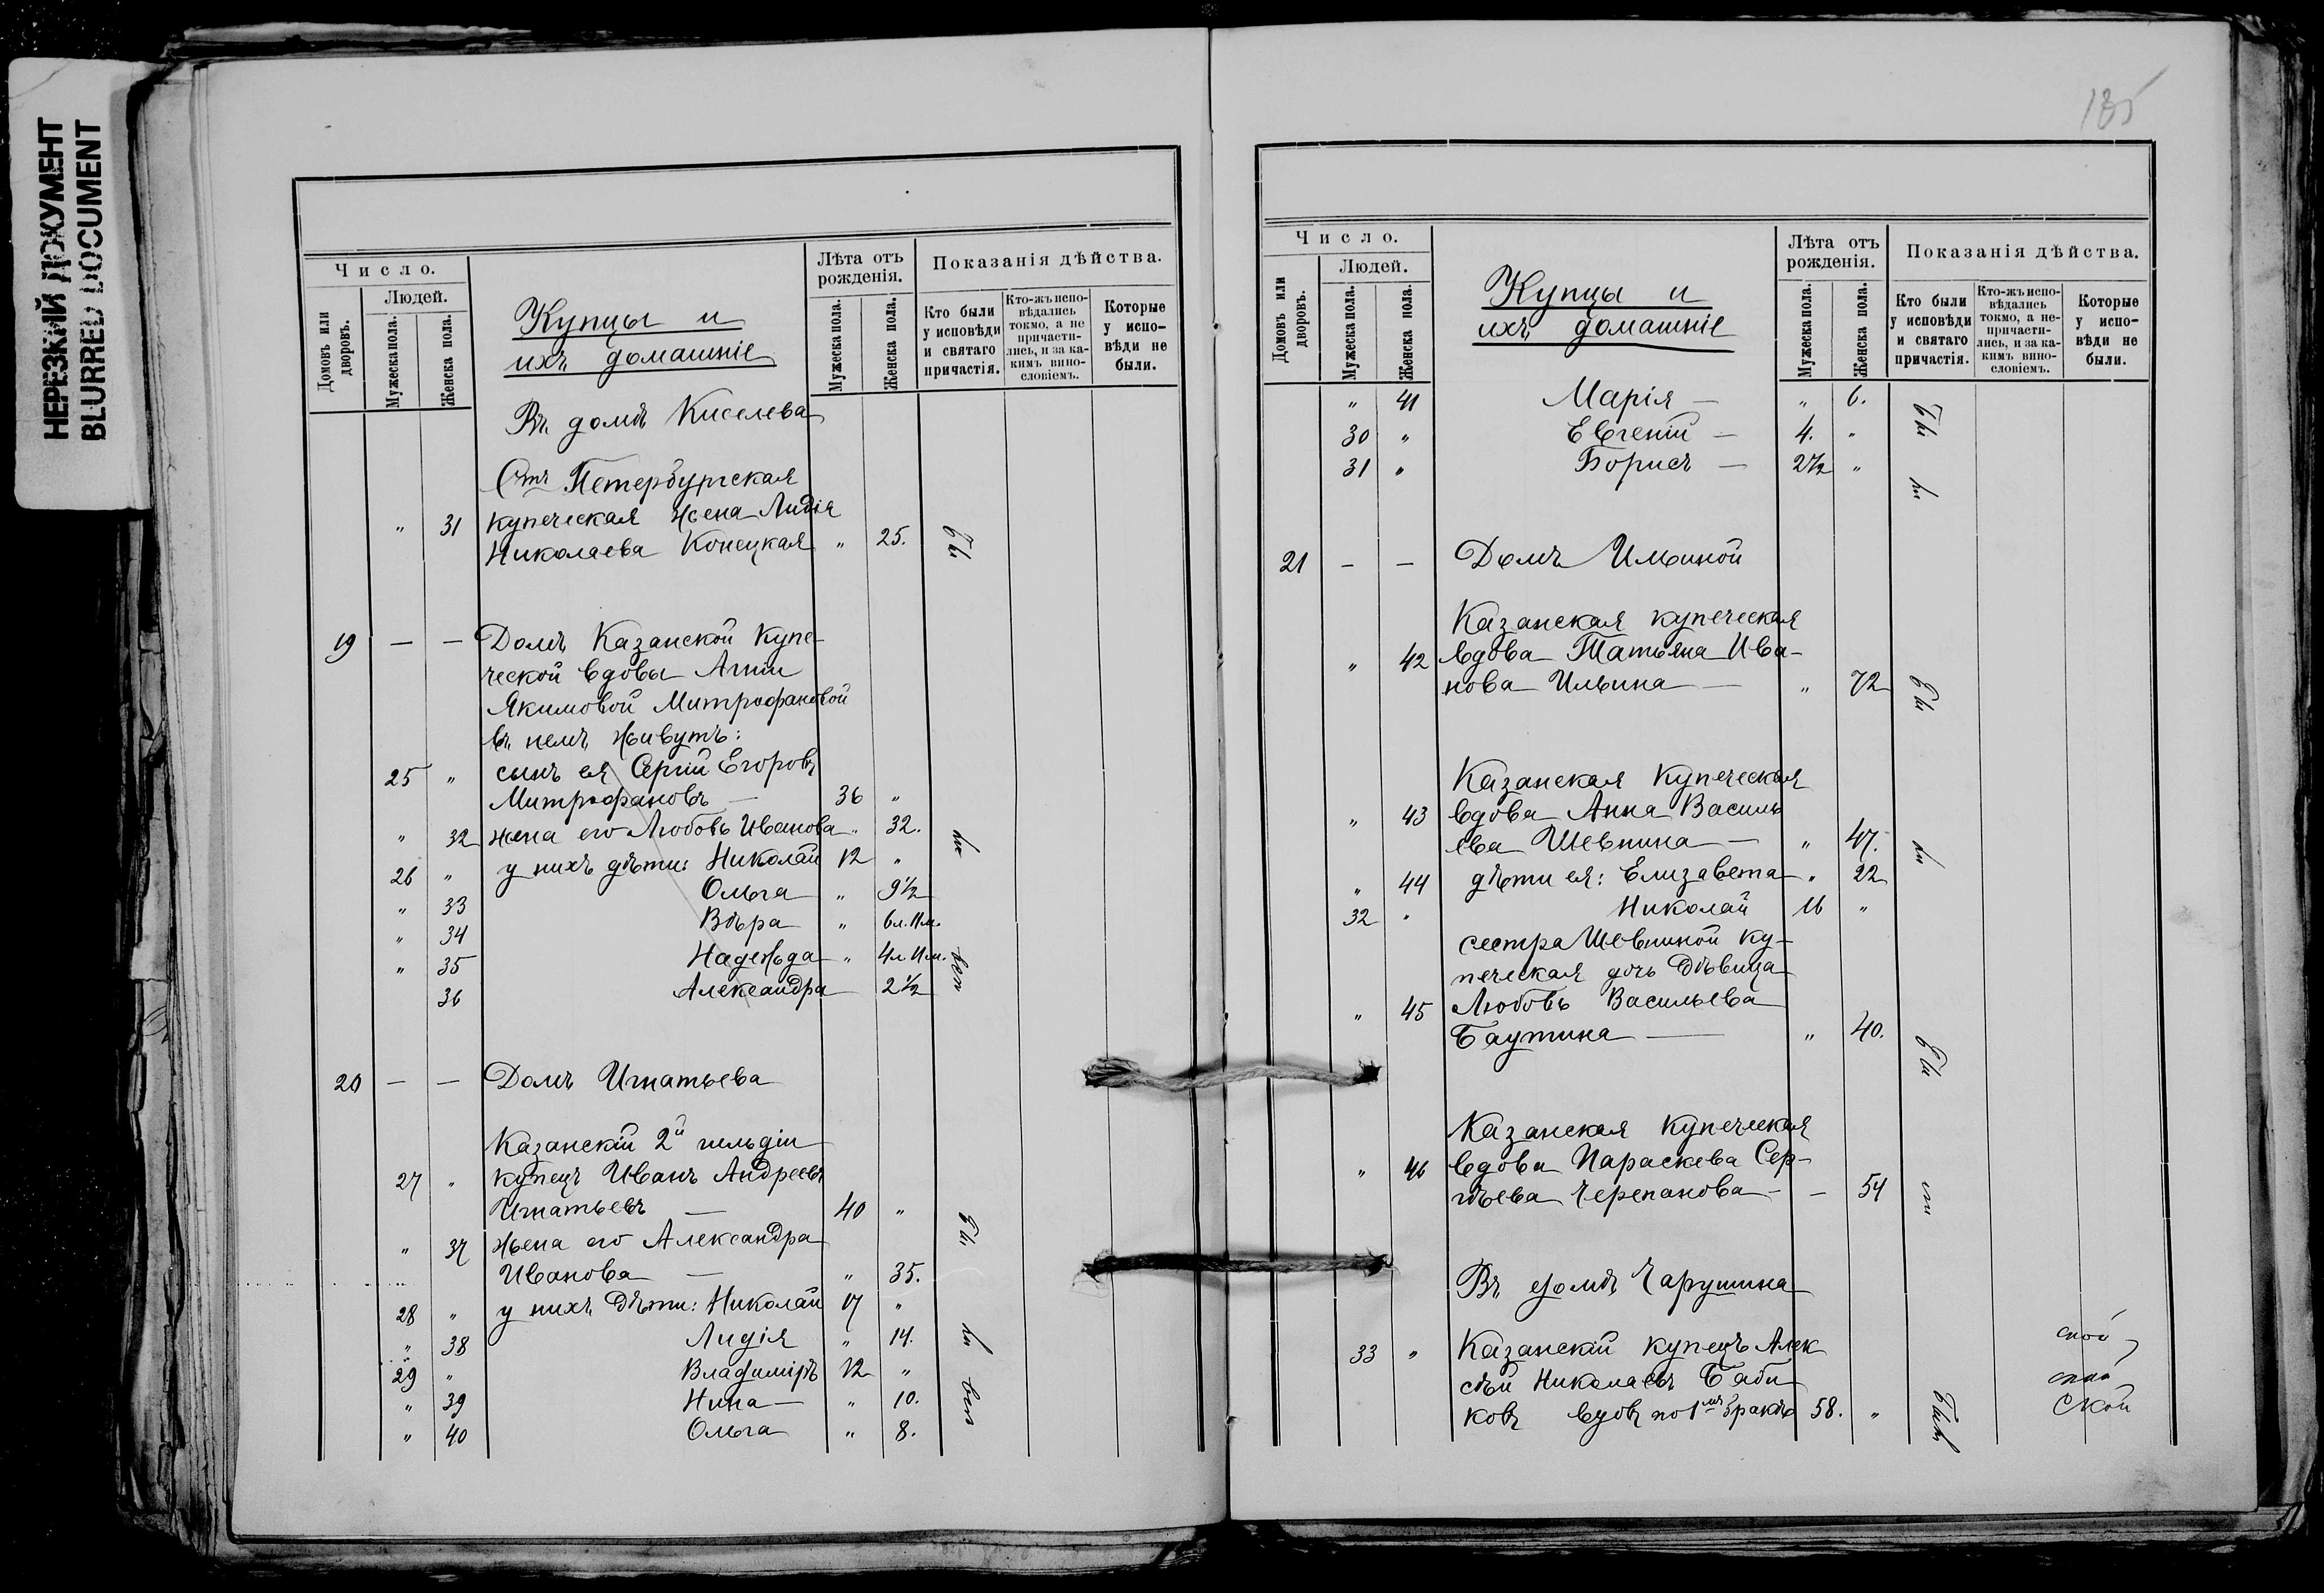 НЕРЕЗКИЙ ДОКУМЕНТ
BLURRED DOCUMENT
Число.
Людей.
Домовъ или дворовъ.
Мужеска пола.
Женска пола.
Купцы и
ихъ домашніе
Лѣта отъ рожденія.
Мужеска пола.
Женска пола.
Показанія дѣйства.
Кто были у исповѣди и святаго причастія.
Кто-жъ испо-вѣдались токмо, а не причасти-лись, и за ка-кимъ вино-словіемъ.
Которые у испо-вѣди не были.
Въ домѣ Киселева
Стъ Петербургская
" 31 купеческая жена Лидія
Николаева Конецкая " 25.
19 — — Домъ Казанской купе-
ческой вдовы Агніи
Якимовой Митрофановой
въ немъ живутъ:
25 " сынъ ея Сергій Егоровъ
Митрофановъ — 36 "
" 32 жена его Любовь Иванова " 32.
26 " у нихъ дѣти: Николай 12 "
" 33 Ольга " 9½
" 34 Вѣра " 6л.11м.
" 35 Надежда " 4л.11м.
36 Александра 2½
20 — — Домъ Игнатьева
Казанскій 2й гильдіи
27 " купецъ Иванъ Андреевъ
Игнатьевъ — 40 "
" 37 жена его Александра
Иванова — " 35.
28 " у нихъ дѣти: Николай 17 "
" 38 Лидія " 14.
29 " Владиміръ 12 "
" 39 Нина — " 10.
" 40 Ольга " 8.
135
Число.
Людей.
Домовъ или дворовъ.
Мужеска пола.
Женска пола.
Купцы и
ихъ домашніе
Лѣта отъ рожденія.
Мужеска пола.
Женска пола.
Показанія дѣйства.
Кто были у исповѣди и святаго причастія.
Кто-жъ испо-вѣдались токмо, а не-причасти-лись, и за ка-кимъ вино-словіемъ.
Которые у испо-вѣди не были.
" 41 Марія — " 6.
30 " Евгеній — 4. "
31 " Борисъ — 2½ "
21 — — Домъ Ильиной
Казанская купеческая
" 42 вдова Татьяна Ива-
нова Ильина — " 72
Казанская купеческая
" 43 вдова Анна Василь
ева Шевнина — " 47.
" 44 дѣти ея: Елизавета " 22
32 " Николай 16 "
сестра Шевниной ку-
печеская дочь дѣвица
" 45 Любовь Васильева
Баутина — " 40.
Казанская купеческая
" 46 вдова Параскева Сер-
гѣева Черепанова — — 54
Въ домѣ Чарушина
33 " Казанскій купецъ Алек
сѣй Николаевъ Баби
ковъ вдовъ по 1мъ бракѣ 58. "
Былъ
ской